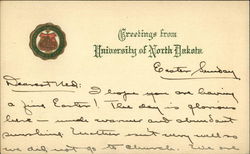 Greetings from
University of North Dakota
Easter Sunday
Dearest Med:   I hope you are having
a fine Easter! This day is glorious
here - made warmer and abundant
sunshine. Mother isn't very well so
we did not go to church. We are